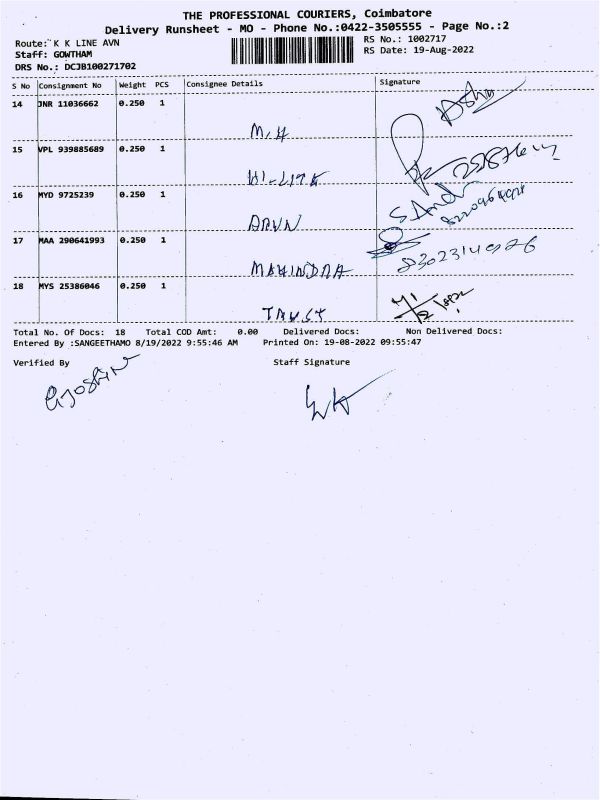 THE PROFESSIONAL COURIERS, Coimbatore
Delivery Runsheet - MO - Phone No.:0422-3505555 - Page No.:2
Route: K K LINE AVN
RS No.: 1002717
Staff: GOWTHAM
RS Date: 19-Aug-2022
DRS No.: DCJB100271702
S No Consignment No Weight PCS Consignee Details Signature
14 JNR 11036662 0.250 1
M.H
15 VPL 939885689 0.250 1
HI-LITE
16 MYD 9725239 0.250 1
ARUN
17 MAA 290641993 0.250 1
MAHINDRA
18 MYS 25386046 0.250 1
TRUST
Total No. Of Docs: 18 Total COD Amt: 0.00 Delivered Docs: Non Delivered Docs:
Entered By :SANGEETHAMO 8/19/2022 9:55:46 AM Printed On: 19-08-2022 09:55:47
Verified By Staff Signature